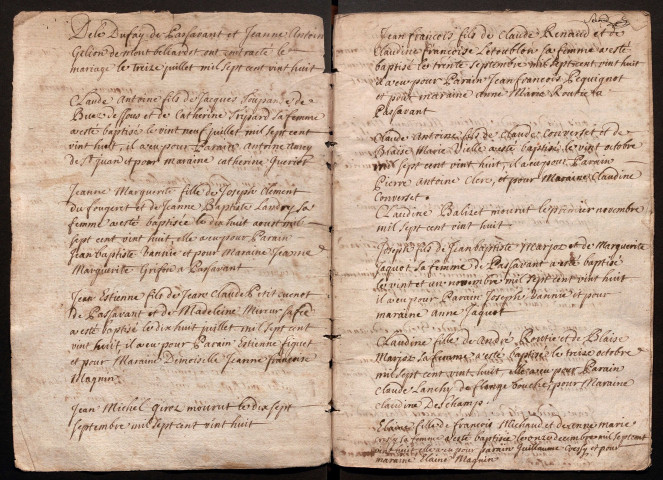 Dele Dufay de Passavant et Jeanne Antoin
Gelion de montbeliardot ont contracté le
mariage le treize juillet mil sept cent vint huit
Claude Antoine fils de Jacques et de
Buez dessous et de Catherine sa femme
a esté baptisé le vint neuf juillet mil sept cent
vint huit, il a eu pour Parain Antoine
de St juan et pour maraine catherine Queriot
Jeanne Marguerite fille de Joseph Clement
du fougeret et de Jeanne Baptiste Landry sa
femme a esté baptisée le dix huit aoust mil
sept cent vint huit, elle a eu pour Parain
Jean baptiste Dannie et pour Maraine Jeanne
Marguerite Grifon a Passavant
Jean Estienne fils de Jean Claude Petit cuenot
de Passavant et de Madeleine Mercier sa fe
a esté baptisé le dix huit juillet mil sept cent
vint huit il a eu pour Parain Estienne figuet
et pour Maraine Demoiselle Jeanne francoise
Magnin
Jean Michel Giroz mourut le dix sept
septembre mil sept cent vint huit
Jean francois fils de Claude Renaud et de
Claudine francoise Letoublon sa femme a esté
baptisé le trente septembre mil sept cent vint huit
il a eu pour Parain Jean francois Pequignot
et pour maraine anne Marie Routie a
Passavant
Claude Antoine fils de Claude Converset et de
Blaise Marie Vielle a esté baptisé le vint octobre
mil sept cent vint huit, il a eu pour Parain
Pierre antoine Clerc, et pour Maraine Claudine
Converset.
Claudine Balizet mourut le premier novembre
mil sept cent vint huit
Joseph fils de Jean baptiste Marjoz et de Marguerite
Jaquot sa femme de Passavant a esté baptisé
le vint et un novembre mil sept cent vint huit
il a eu pour Parain Joseph Dannie et pour
maraine anne Jaquot
Claudine fille de André Routie et de Blaise
Marjoz sa femme a esté baptisée le treize octobre
mil sept cent vint huit, elle a eu pour Parain
claude Lanchy de Longe bouche, pour Maraine
claudine Deschamp.
Elaine fille de francois Michaud et de anne marie
sa femme a esté baptisée le onze decembre mil sept cent
vint huit elle a eu pour parain Guillaume et pour
maraine Elaine Magnin